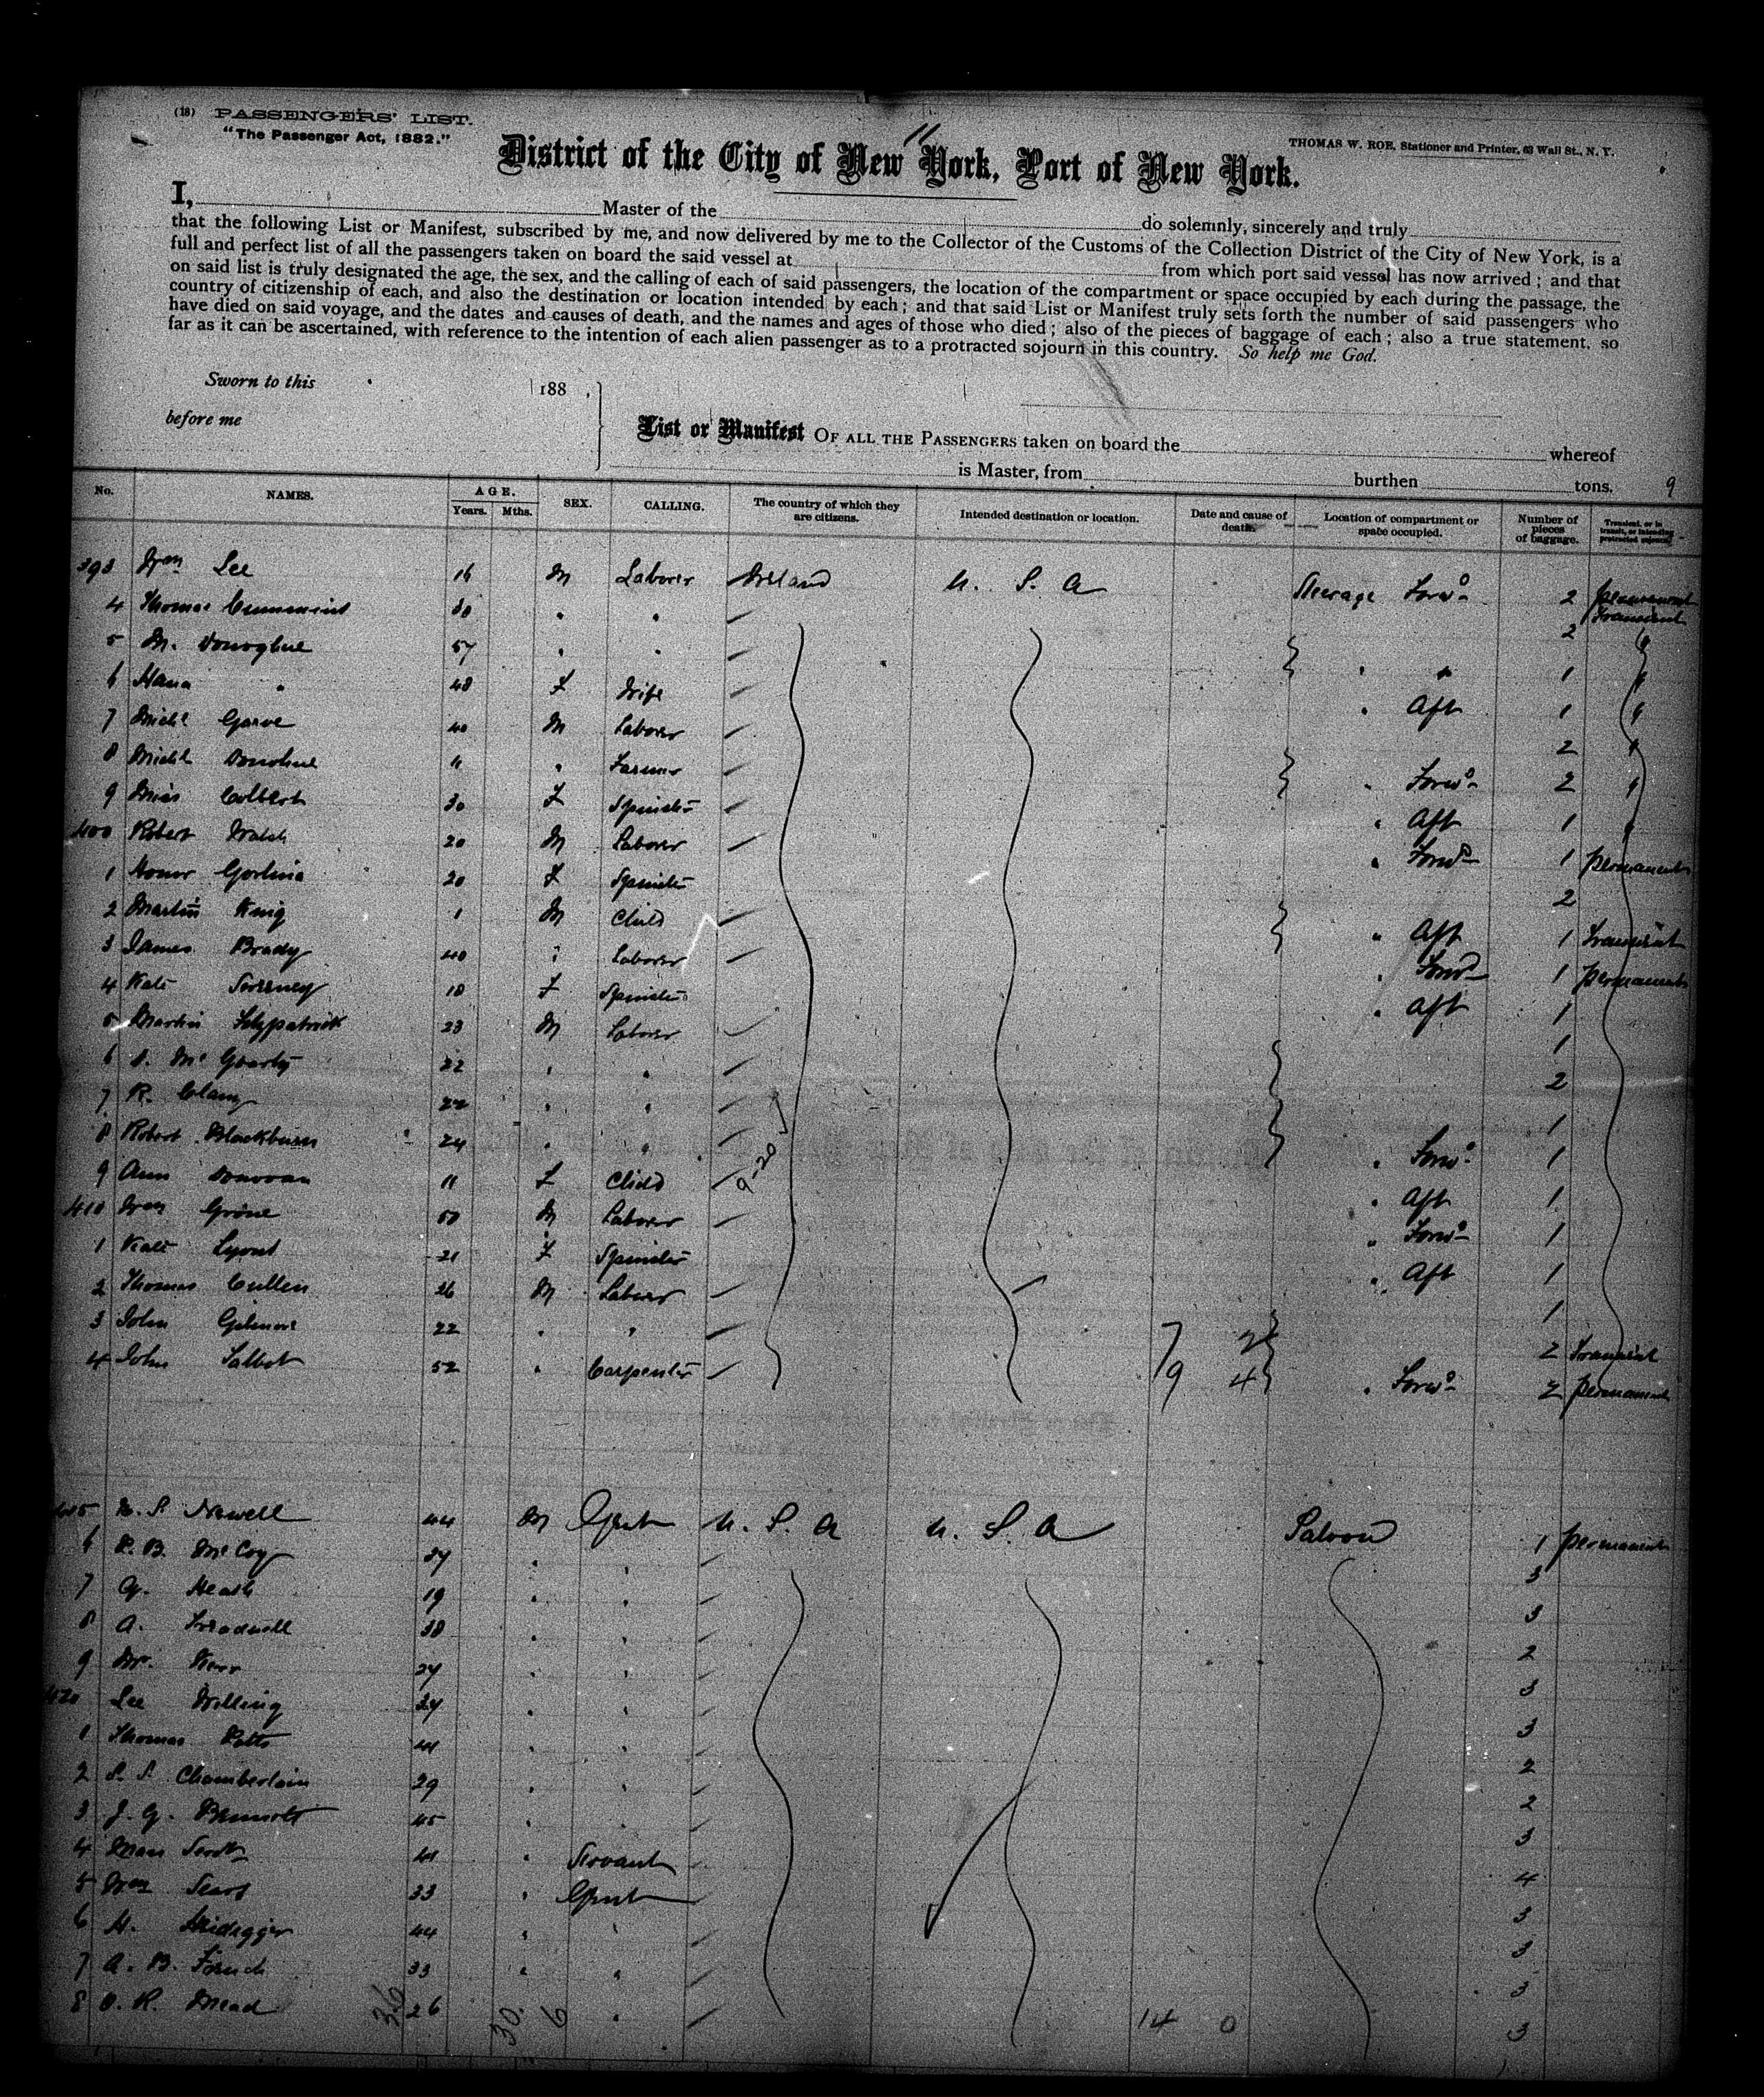 (18) PASSENGERS' LIST.
"The Passenger Act, 1882."
11
THOMAS W. ROE, Stationer and Printer, 63 Wall St., N. Y.
District of the City of New York, Port of New York.
I, Master of the do solemnly, sincerely and truly
that the following List or Manifest, subscribed by me, and now delivered by me to the Collector of the Customs of the Collection District of the City of New York, is a
full and perfect list of all the passengers taken on board the said vessel at from which port said vessel has now arrived; and that
on said list is truly designated the age, the sex, and the calling of each of said passengers, the location of the compartment or space occupied by each during the passage, the
country of citizenship of each, and also the destination or location intended by each; and that said List or Manifest truly sets forth the number of said passengers who
have died on said voyage, and the dates and causes of death, and the names and ages of those who died; also of the pieces of baggage of each; also a true statement, so
far as it can be ascertained, with reference to the intention of each alien passenger as to a protracted sojourn in this country. So help me God.
Sworn to this 188 .
before me
List or Manifest OF ALL THE PASSENGERS taken on board the whereof
is Master, from burthen tons. 9
No. NAMES. AGE. Years. Mths. SEX. CALLING. The country of which they are citizens. Intended destination or location. Date and cause of death. Location of compartment or space occupied. Number of pieces of baggage. Transient, or in transit, or intending protracted sojourn.
393 Wm Lee 16 M Laborer Ireland U. S. A Steerage Forwd 2 permanent
4 Thomas 30 " " 2 Transient
5 M. Donoghue 57 " " " " 1 "
6 Hana " 48 F Wife " Aft 1 "
7 Michl Garve 40 M Laborer 2 "
8 Michl Donohue 11 " Farmer " Forwd 2 "
9 Miss Colbert 30 F Spinster " Aft 1
400 Robert Walsh 20 M Laborer " Forwd 1 permanent
1 Honor 20 F Spinster 2
2 Martin King 1 M Child " Aft 1 Transient
3 James Brady 40 " Laborer " Forwd 1 permanent
4 Kate Sweeney 18 F Spinster " Aft 1
5 Martin Fitzpatrick 23 M Laborer 1
6 22 " " 2
7 R. Clany 22 " " 1
8 Robert Blackburn 24 " " " Forwd 1
9 Ann Donovan 11 F Child 9-20 " Aft 1
410 Wm 50 M Laborer " Forwd 1
1 Kate Lyons 21 F Spinster " Aft 1
2 Thomas Cullen 26 M Laborer 1
3 John Gilmore 22 " " 7 2 2 Transient
4 John Talbot 52 " Carpenter 9 4 " Forwd 2 permanent
415 Newell 44 M Gent U. S. A U. S. A Saloon 1 permanent
6 McCoy 27 " " 3
7 G. Heath 19 " " 3
8 A. Treadwell 38 " " 2
9 Mr. Kerr 27 " " 3
420 Lee Willing 24 " " 3
1 Thomas Potts 41 " " 2
2 Chamberlain 29 " " 2
3 J. G. Bennett 45 " " 3
4 41 " Servant 4
5 Wm Sears 33 " Gent 3
6 H. Heidegger 44 " " 3
7 A. B. French 33 " " 3
8 Mead 36 26 30. 6 " 14 0 3